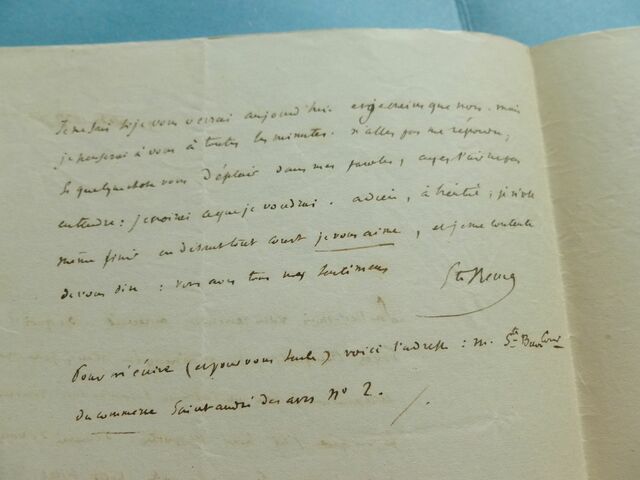 Je ne sais si je vous verrai aujourd'hui. et je crains que non. mais
je penserai à vous à toutes les minutes. n'allez pas me répondre;
si quelque chose vous déplait dans mes paroles, ayez l'air ne pas
entendre: je croirai ce que je voudrai. adieu, à bientôt; je n'ose
même finir en disant tout court je vous aime, et je me contente
de vous dire: vous avez tous mes sentimens
Ste Beuve
Pour m'écrire (et pour vous seule) voici l'adresse: m. Ste Beuve Cour
du commerce Saint andré des arcs no 2.